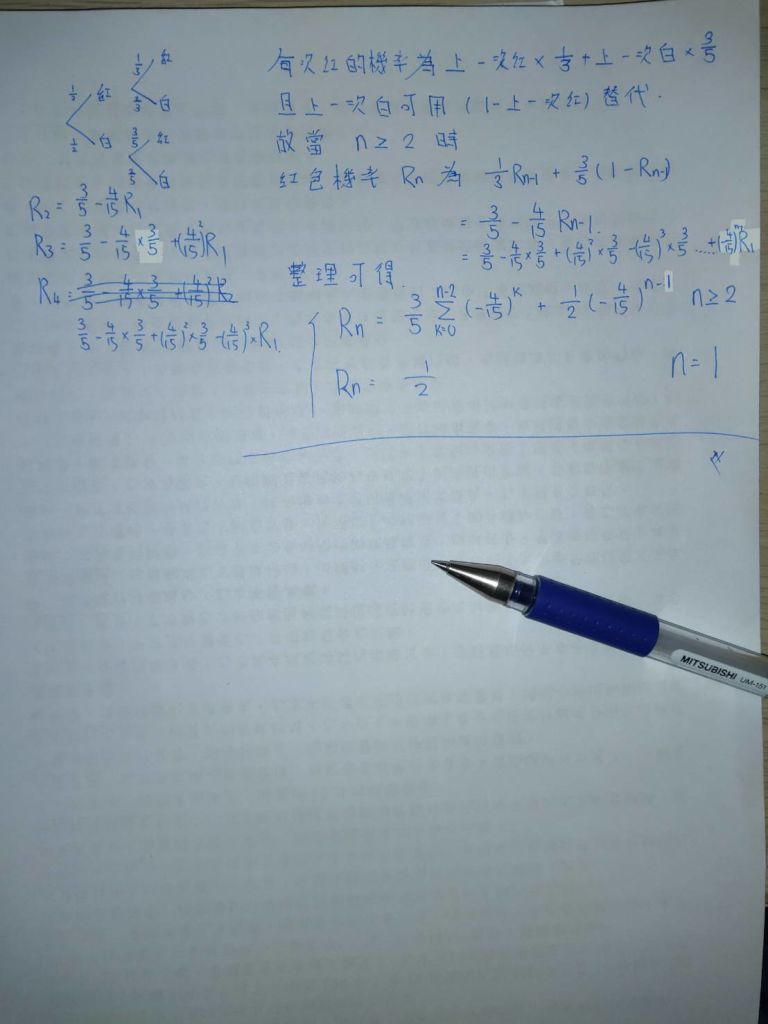 1/2 紅 1/3 紅
2/3 白
1/2 白 3/5 紅
2/5 白
R₂ = 3/5 - 4/15 R₁
R₃ = 3/5 - 4/15 × 3/5 + (4/15)² R₁
R₄ = 3/5 - 4/15 × 3/5 + (4/15)² R₂
3/5 - 4/15 × 3/5 + (4/15)² × 3/5 - (4/15)³ × R₁.
每次紅的機率為上一次紅 × 1/3 + 上一次白 × 3/5
且上一次白可用 (1-上一次紅) 替代.
故當 n ≥ 2 時
紅色機率 Rn 為 1/3 Rn-1 + 3/5 (1 - Rn-1)
= 3/5 - 4/15 Rn-1.
= 3/5 - 4/15 × 3/5 + (4/15)² × 3/5 - (4/15)³ × 3/5 ..... + (4/15)ⁿ R₁
整理可得.
{ Rn = 3/5 Σ_{k=0}^{n-2} (-4/15)^k + 1/2 (-4/15)^{n-1} n ≥ 2
Rn = 1/2 n = 1
MITSUBISHI UM-151